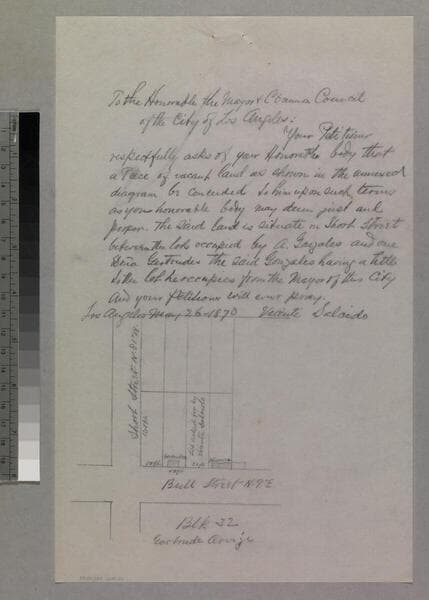 To the Honorable the Mayor & Common Council
of the City of Los Angeles:
Your Petitioner
respectfully asks of your Honorable body that
a Piece of vacant land as shown in the annexed
diagram be conceded to him upon such terms
as your honorable body may deem just and
proper. The said land is situate on Short Street
between the lots occupied by A. Gozales and one
Doña Gertrudes the said Gonzales having a title
to the lot he occupies from the Mayor of this City
And your Petitioner will ever pray.
Los Angeles May 26 1870 Vicente Salcido
Short Street N
Lot asked for by
Vicente Salcido
Bull Street N
Blk 32
Gertrude